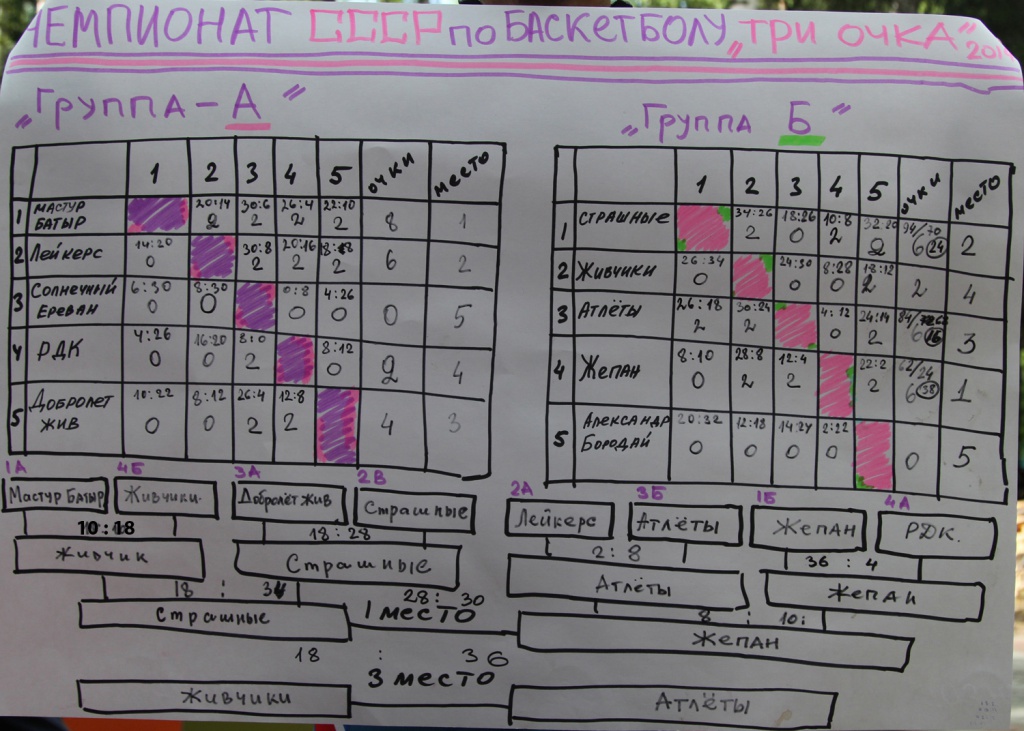 ЧЕМПИОНАТ СССР по БАСКЕТБОЛУ „ТРИ ОЧКА"
„Группа - А"
1 2 3 4 5 очки место
1 Мастур Батыр 20:14 2 30:6 2 26:4 2 22:10 2 8 1
2 Лейкерс 14:20 0 30:8 2 20:16 2 2 6 2
3 Солнечный Ереван 6:30 0 8:30 0 0:8 0 4:26 0 0 5
4 РДК 4:26 0 16:20 0 8:0 2 8:12 0 2 4
5 Добролет жив 10:22 0 8:12 0 26:4 2 12:8 2 4 3
„Группа Б"
1 2 3 4 5 очки место
1 Страшные 34:26 2 18:26 0 10:8 2 32:20 2 94/70 6 24 2
2 Живчики 26:34 0 24:30 0 8:28 0 18:12 2 2 4
3 Атлёты 26:18 2 30:24 2 4:12 0 24:14 2 6 16 3
4 Жепан 8:10 0 28:8 2 12:4 2 22:2 2 62/24 6 38 1
5 Александр Бородай 20:32 0 12:18 0 14:24 0 2:22 0 0 5
1А 4Б 3А 2В
Мастур Батыр Живчики. Добролёт жив Страшные
10:18 18:28
Живчик Страшные
18 : 34
Страшные
2А 3Б 1Б 4А
Лейкерс Атлёты Жепан РДК.
2:8 36 : 4
Атлёты Жепан
8 : 10:
Жепан
28: 30
1 место
18 : 36
3 место
Живчики Атлёты